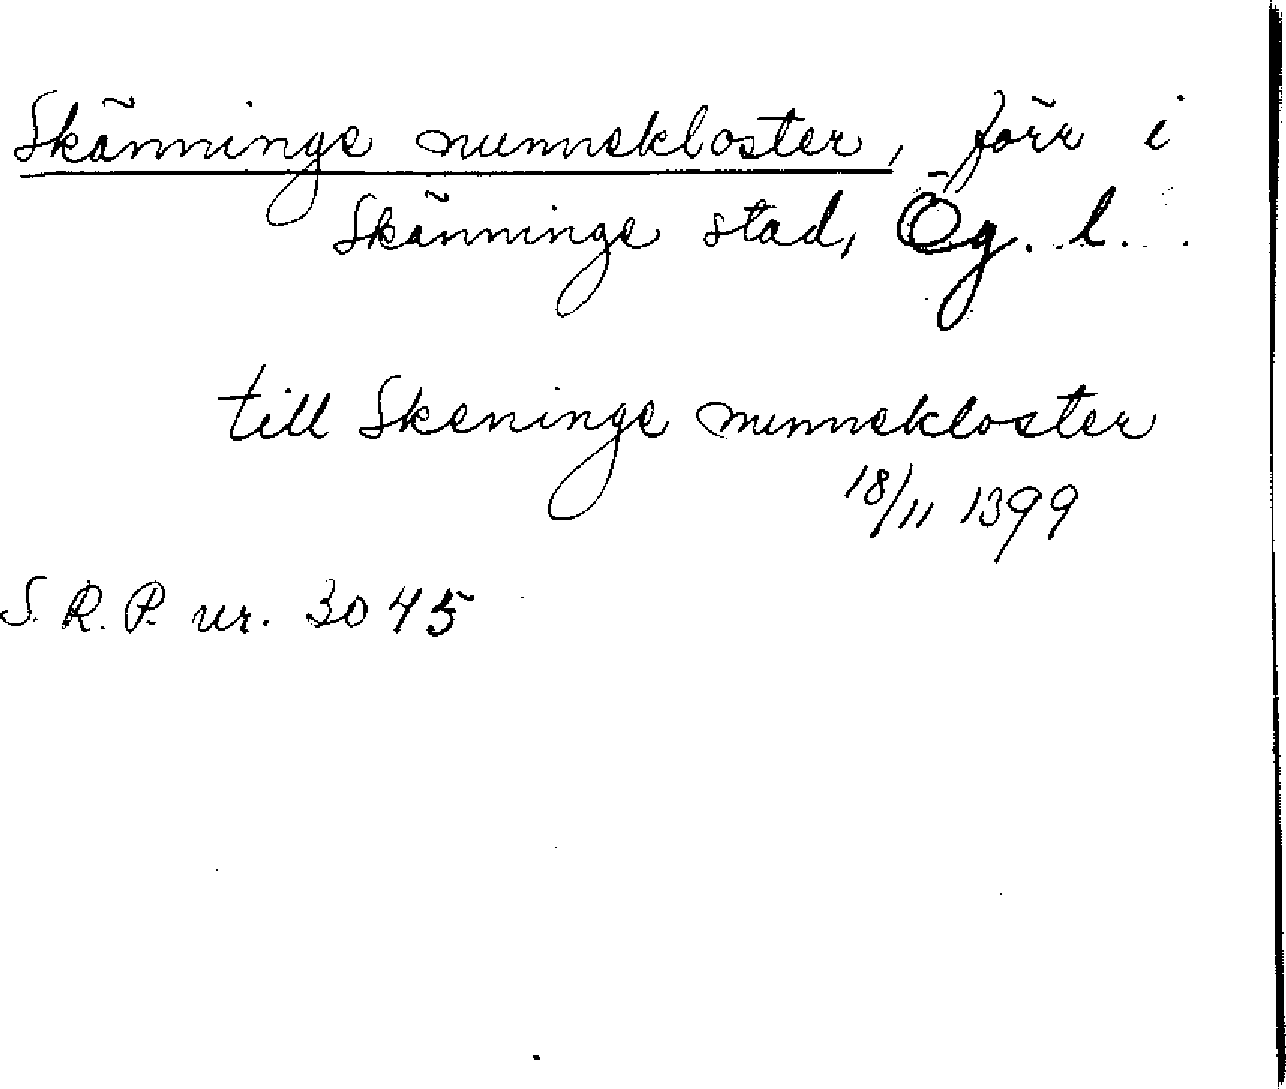 Skänninge nunnekloster, förr i
Skänninge stad, Ög. l.
till Skeninge nunnekloster
18/11 1399
S.R.P. nr. 3045